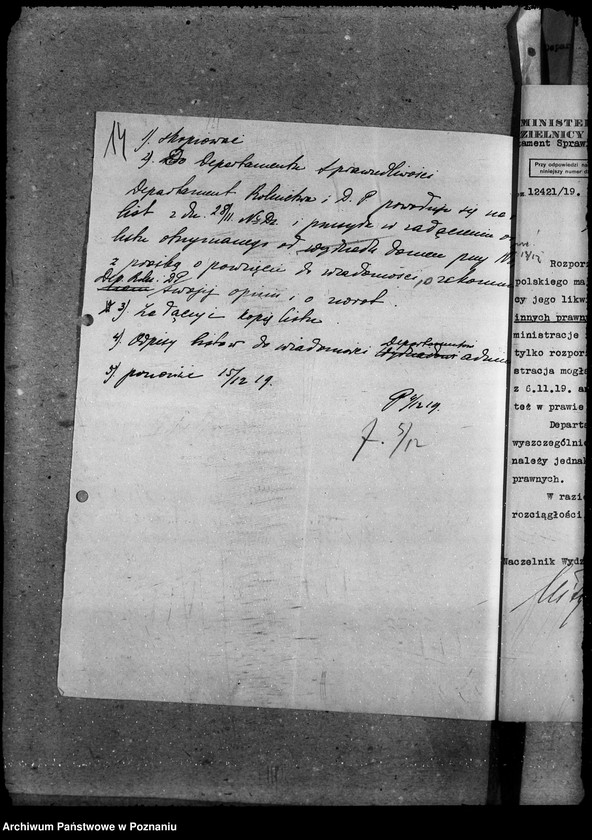 14
1/. skopiować
2/. Do Departamentu Sprawiedliwości
Departament Rolnictwa i D. P. powołuje się na
list z dn. 28/11 № Dz. i przesyła w załączeniu
listu otrzymanego od wydziału domen przy
z prośbą o powzięcie do wiadomości, o
Dep. Roln. DP
swojej opinii i o zwrot.
3/. Załączyć kopię listu
4/. Odpisy listów do wiadomości Departamentu
5/. ponownie 15/12 19.
P 4/12 19.
5/12
MINISTE
ZIELNICY
ament Spraw
Przy odpowiedzi
niniejszy numer
12421/19.
Rozpor
polskiego ma
cy jego likw
innych prawn
ministracje
tylko rozpor
stracja mogła
z 6.11.19. a
też w prawie
Departa
wyszczególnie
należy jednak
prawnych.
W razie
rozciągłości
Naczelnik Wydz
Archiwum Państwowe w Poznaniu